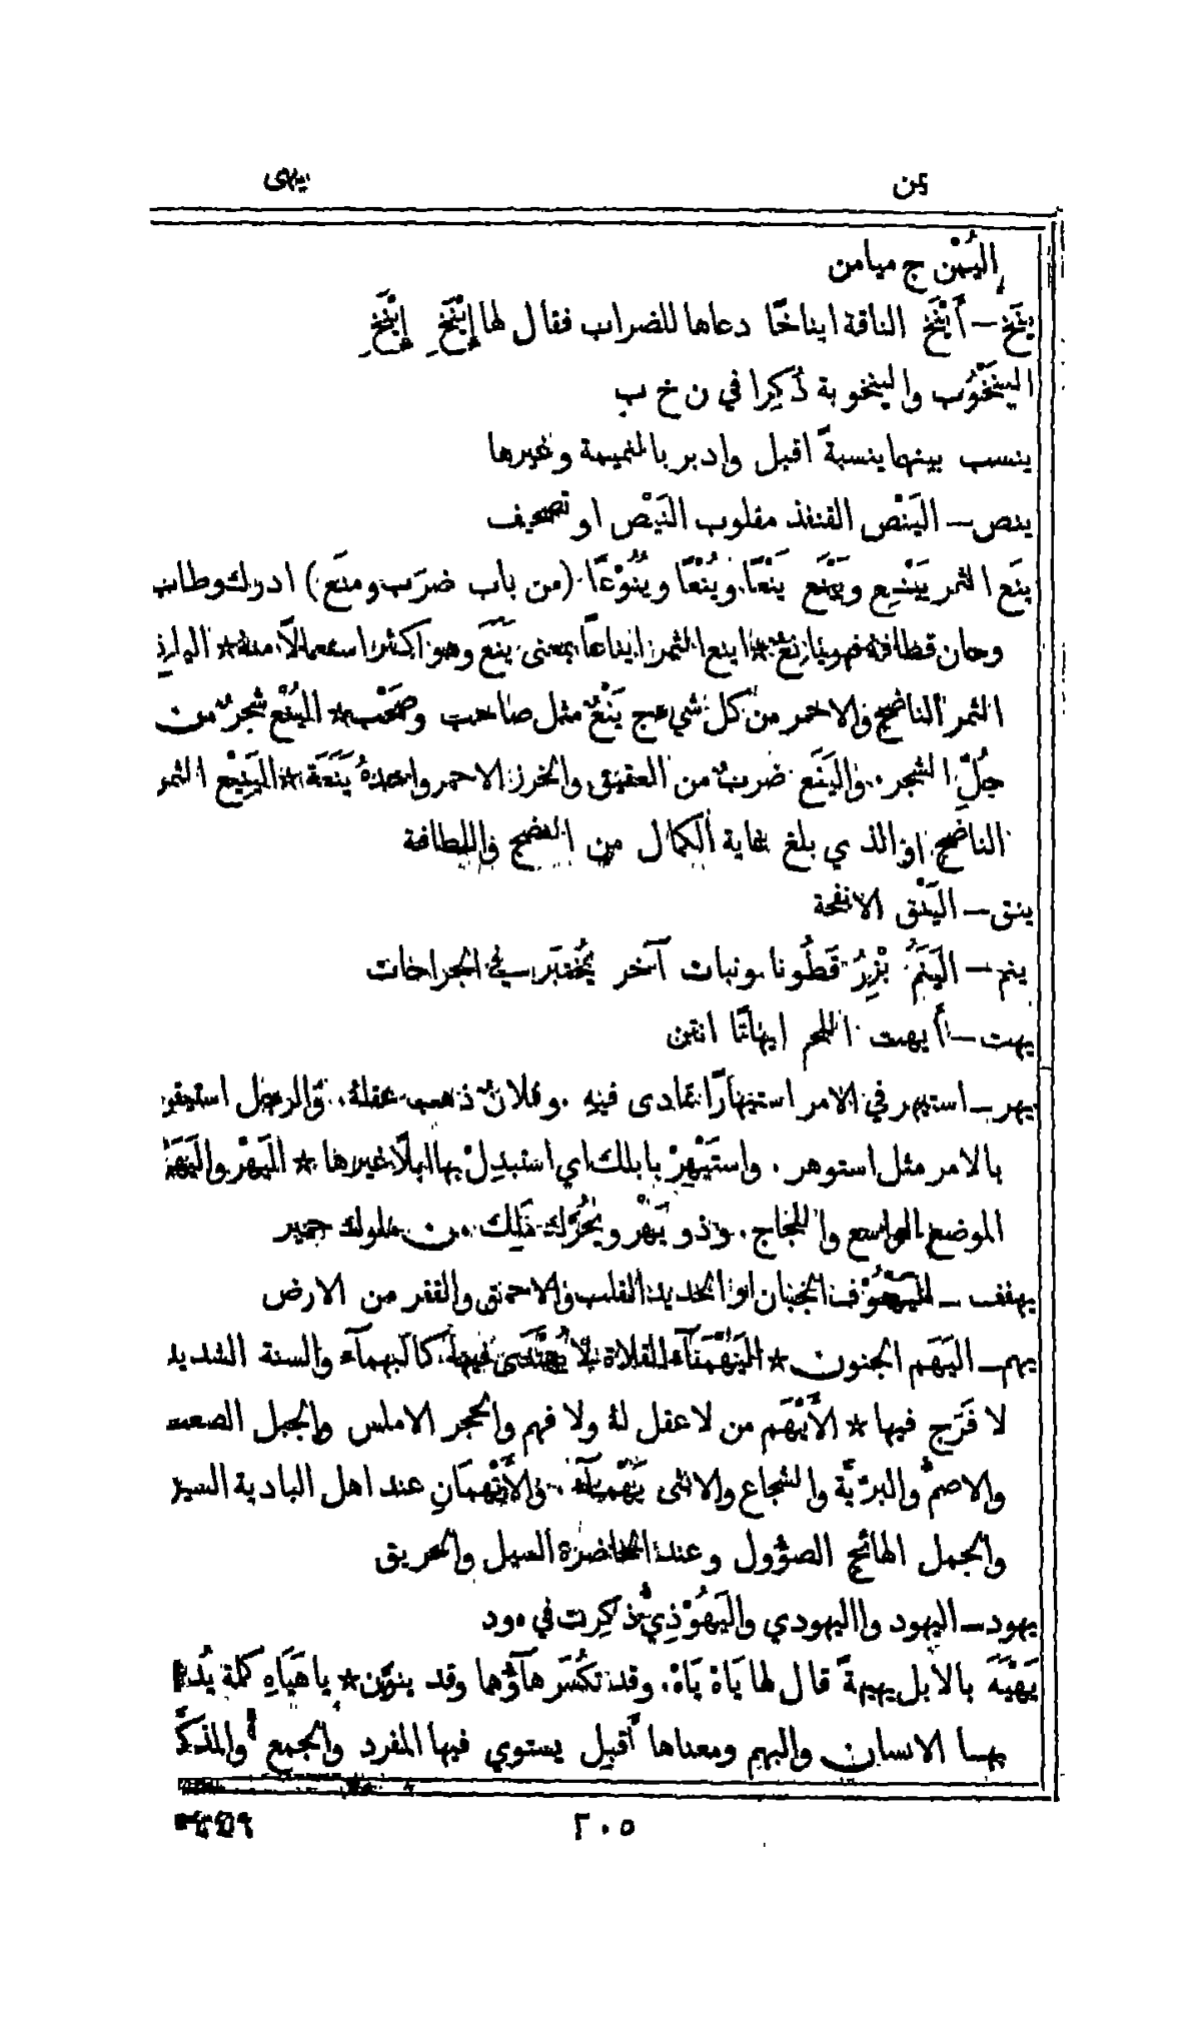 يمن
يهى
اليُمْن ج ميامن
ينَخ — أَيْنَخَ الناقة ايناخًا دعاها للضراب فقال لها إِيْنَخِ إِيْنَخِ
الينخُوب والينخوبة ذُكِرا في ن خ ب
ينسب بينهما ينسبةً اقبل وادبر بالنميمة وغيرها
ينص — اليَنْص القنفذ مقلوب النَيْص او تصحيف
ينَع الثمر يَيْنِع ويَيْنَع يَنْعًا ويُنْعًا ويُنُوْعًا (من باب ضرَب ومنَع) ادرك وطاب
وحان قطافهُ فهو يانِعٌ * اينع الثمر ايناعًا بمعنى يَنَعَ وهو اكثر استعمالاً منهُ *
الثمر الناضج والاحمر من كل شيء ج يَنْعٌ مثل صاحب وصَحْب * اليُنْع شجرٌ من
جُلّ الشجر. واليَنَع ضربٌ من العقيق والخرز الاحمر واحدهُ يَنَعَة * اليَنِيْع الثمر
الناضج او الذي بلغ غاية الكمال من النضج واللطافة
ينق — اليَنْق الانفحة
ينم — اليَنَمُ بْزِرُ قَطُونا ونبات آخر يُختبَر في الجراحات
يهت — أَيهت اللحم ايهاتًا انتن
يهر — استيهر في الامر استيهارًا تمادى فيهِ. وفلانٌ ذهب عقلهُ. والرجل استيقن
بالامر مثل استوهر. واستَيْهِرْ بابلك اي استبدِلْ بها ابلًا غيرها * اليَهْر واليَهَر
الموضع الواسع واللجاج. وذو يَهْر ويُحُرَّك مَلِك من ملوك حمير
يهفف — اليَهْفُوْف الجبان او الحديد القلب والاحمق والقفر من الارض
يهم — اليَهَم الجنون * اليَهْمَآء الفلاة لا يُهْتَدَى فيها كالبهمآء والسنة الشديد
لا فَرَج فيها * الأَيْهَم من لا عقل لهُ ولا فهم والحجر الاملس والجبل الصعب
والاصمّ والبرّيّة والشجاع والانثى يَهْمَآء. والأَيْهمَانِ عند اهل البادية السير
والجمل الهائج الصؤُول وعند الحاضرة السيل والحريق
يهود — اليهود والاليهودي واليَهُوْذِيّ ذكِرت في ه‍ود
يَهْيَهَ بالابل يهيهةً قال لها يَاهْ يَاهْ. وقد تكُسَر هآؤُهما وقد ينوَّن * يا هَيَاهِ كلمة
بهـا الانسان والبهيم ومعناها أَقبِل يستوي فيها المفرد والجمع والمذكَّر
٢٠٥